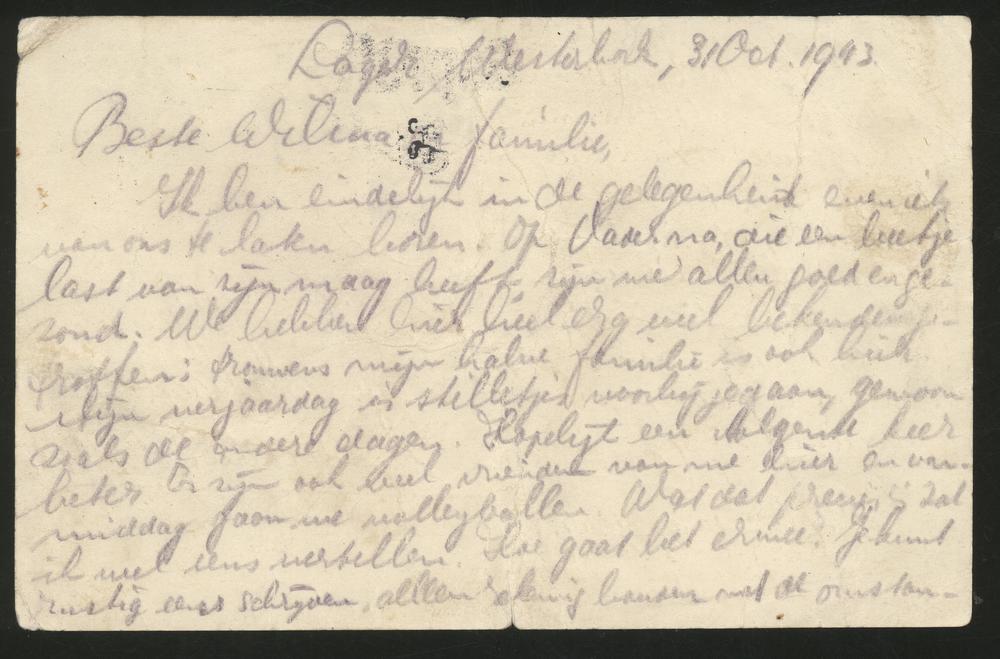 Lager Westerbork, 31 Oct. 1943.
Beste Wilma en familie,
Ik ben eindelijk in de gelegenheid even iets
van ons te laten horen. Op Vader na, die een beetje
last van zijn maag heeft, zijn we allen goed en ge-
zond. We hebben hier heel erg veel bekenden ge-
troffen; trouwens mijn halve familie is ook hier.
Mijn verjaardag is stilletjes voorbijgegaan, gewoon
zoals de andere dagen. Hopelijk een volgende keer
beter. Er zijn ook veel vrienden van me hier en van-
middag gaan we volleyballen. Wat dat precies is zal
ik wel eens vertellen. Hoe gaat het ermee. Je kunt
rustig eens schrijven, alleen rekening houden met de omstan-